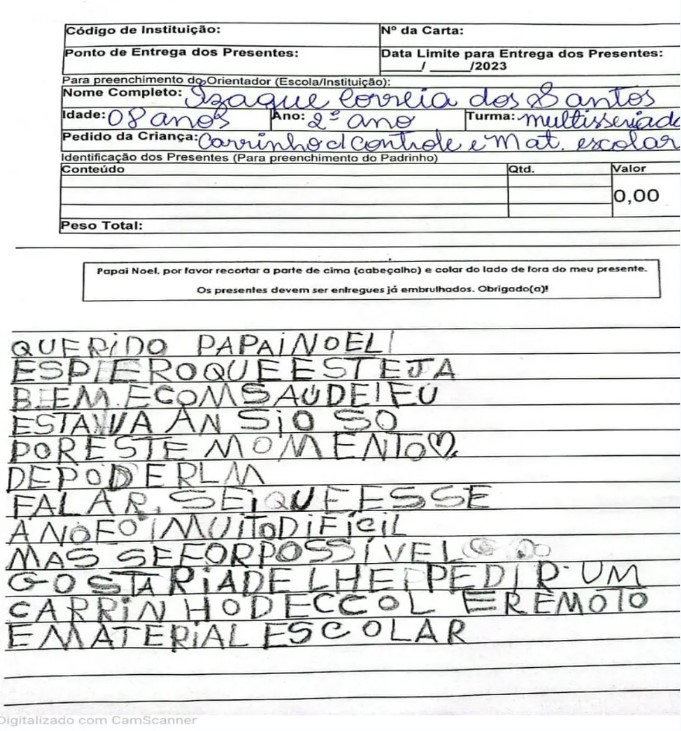 Código de Instituição: Nº da Carta:
Ponto de Entrega dos Presentes: Data Limite para Entrega dos Presentes:
____/ ____/2023
Para preenchimento do Orientador (Escola/Instituição):
Nome Completo: Izaque Correia dos Santos
Idade: 08 anos Ano: 2º ano Turma: multisseriada
Pedido da Criança: Carrinho d controle e Mat. escolar
Identificação dos Presentes (Para preenchimento do Padrinho)
Conteúdo Qtd. Valor
0,00
Peso Total:
Papai Noel, por favor recortar a parte de cima (cabeçalho) e colar do lado de fora do meu presente.
Os presentes devem ser entregues já embrulhados. Obrigado(a)!
QUERIDO PAPAI NOEL!
ESPIERO QUE ESTEJA
BIEM E COM SAÚDE! EU
ESTAVA ANSIOSO
POR ESTE MOMENTO
DE PODER LM
FALAR, SEI QUE ESSE
ANO FOI MUITO DIFICIL
MAS SE FOR POSSÍVEL
GOSTARIA DE LHE PEDIR UM
CARRINHO DE CCOL E REMOTO
E MATERIAL ESCOLAR
Digitalizado com CamScanner